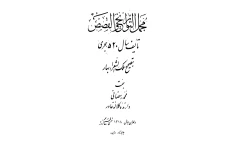 مجمل التواریخ والقصص
تألیف سال ۵۲۰ هجری
بتصحیح ملک الشعراء بهار
بهمت
محمد رمضانی
دارنده کلاله خاور